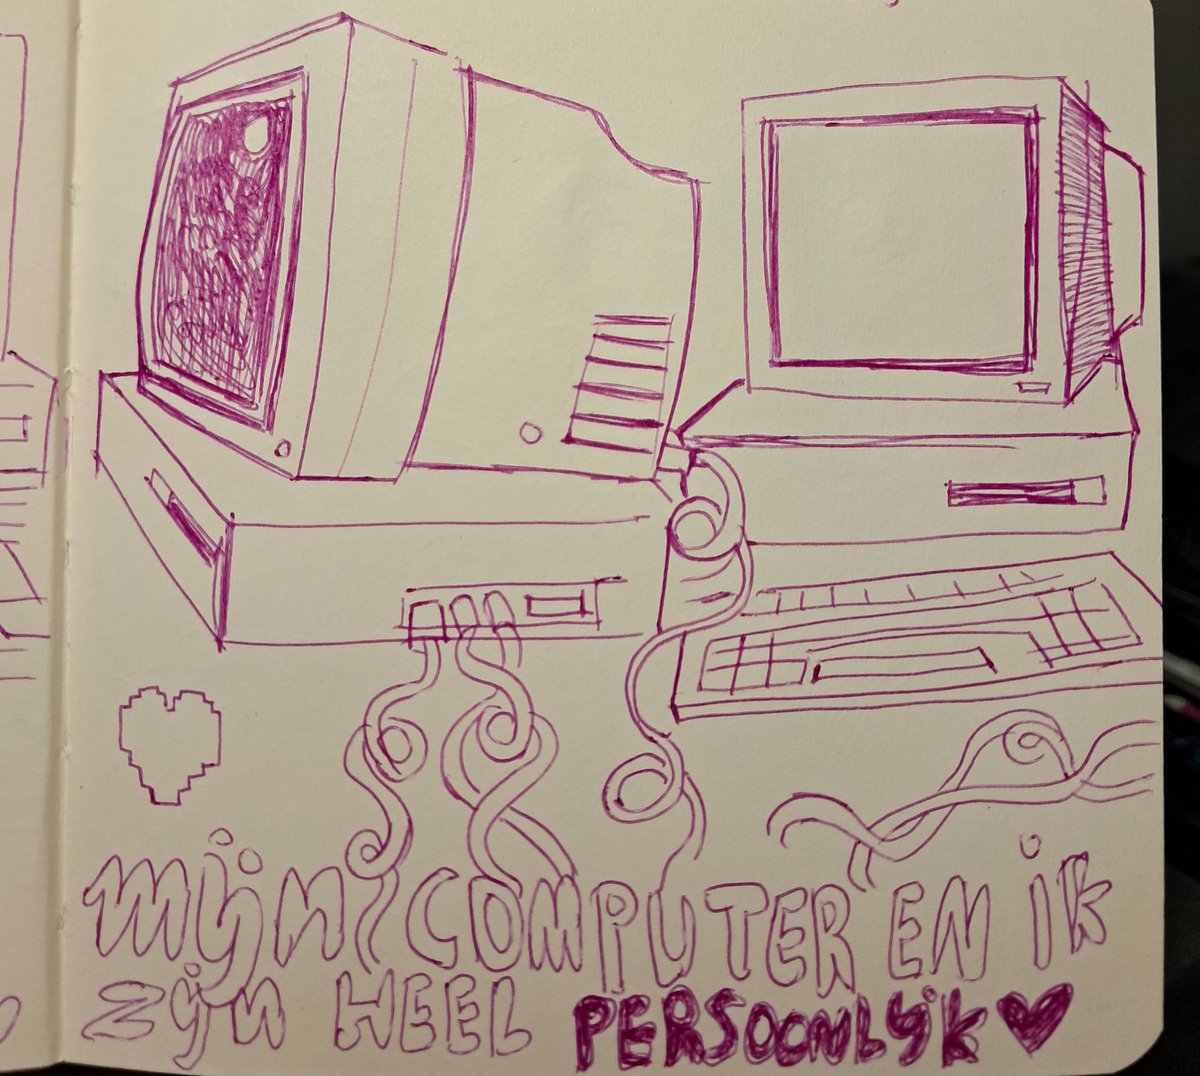 mijn COMPUTER EN iK
zijn HEEL PERSOONLijK